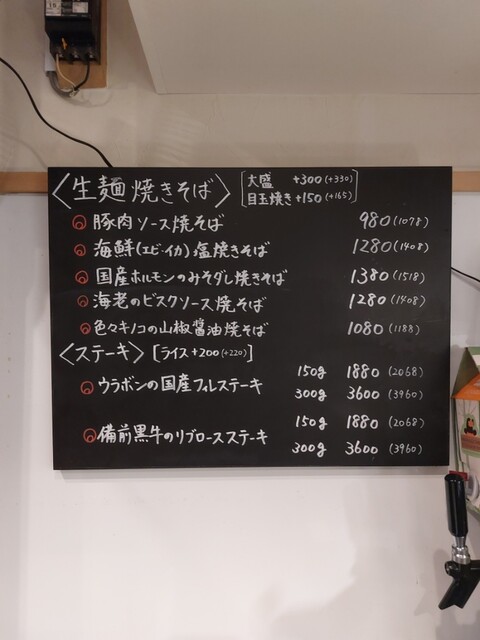 〈生麺焼きそば〉 [大盛 +300(+330)
目玉焼き+150(+165)]
豚肉ソース焼そば 980(1078)
海鮮(エビ・イカ)塩焼きそば 1280(1408)
国産ホルモンのみそダレ焼きそば 1380(1518)
海老のビスクソース焼そば 1280(1408)
色々キノコの山椒醤油焼そば 1080(1188)
〈ステーキ〉[ライス+200(+220)]
ウラボンの国産フィレステーキ 150g 1880(2068)
300g 3600(3960)
備前黒牛のリブロースステーキ 150g 1880(2068)
300g 3600(3960)